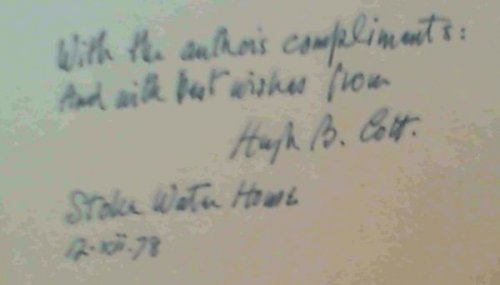 With the author's compliments:
And with best wishes from
Hugh B. Cott.
Stoke Water House
12·xii·78